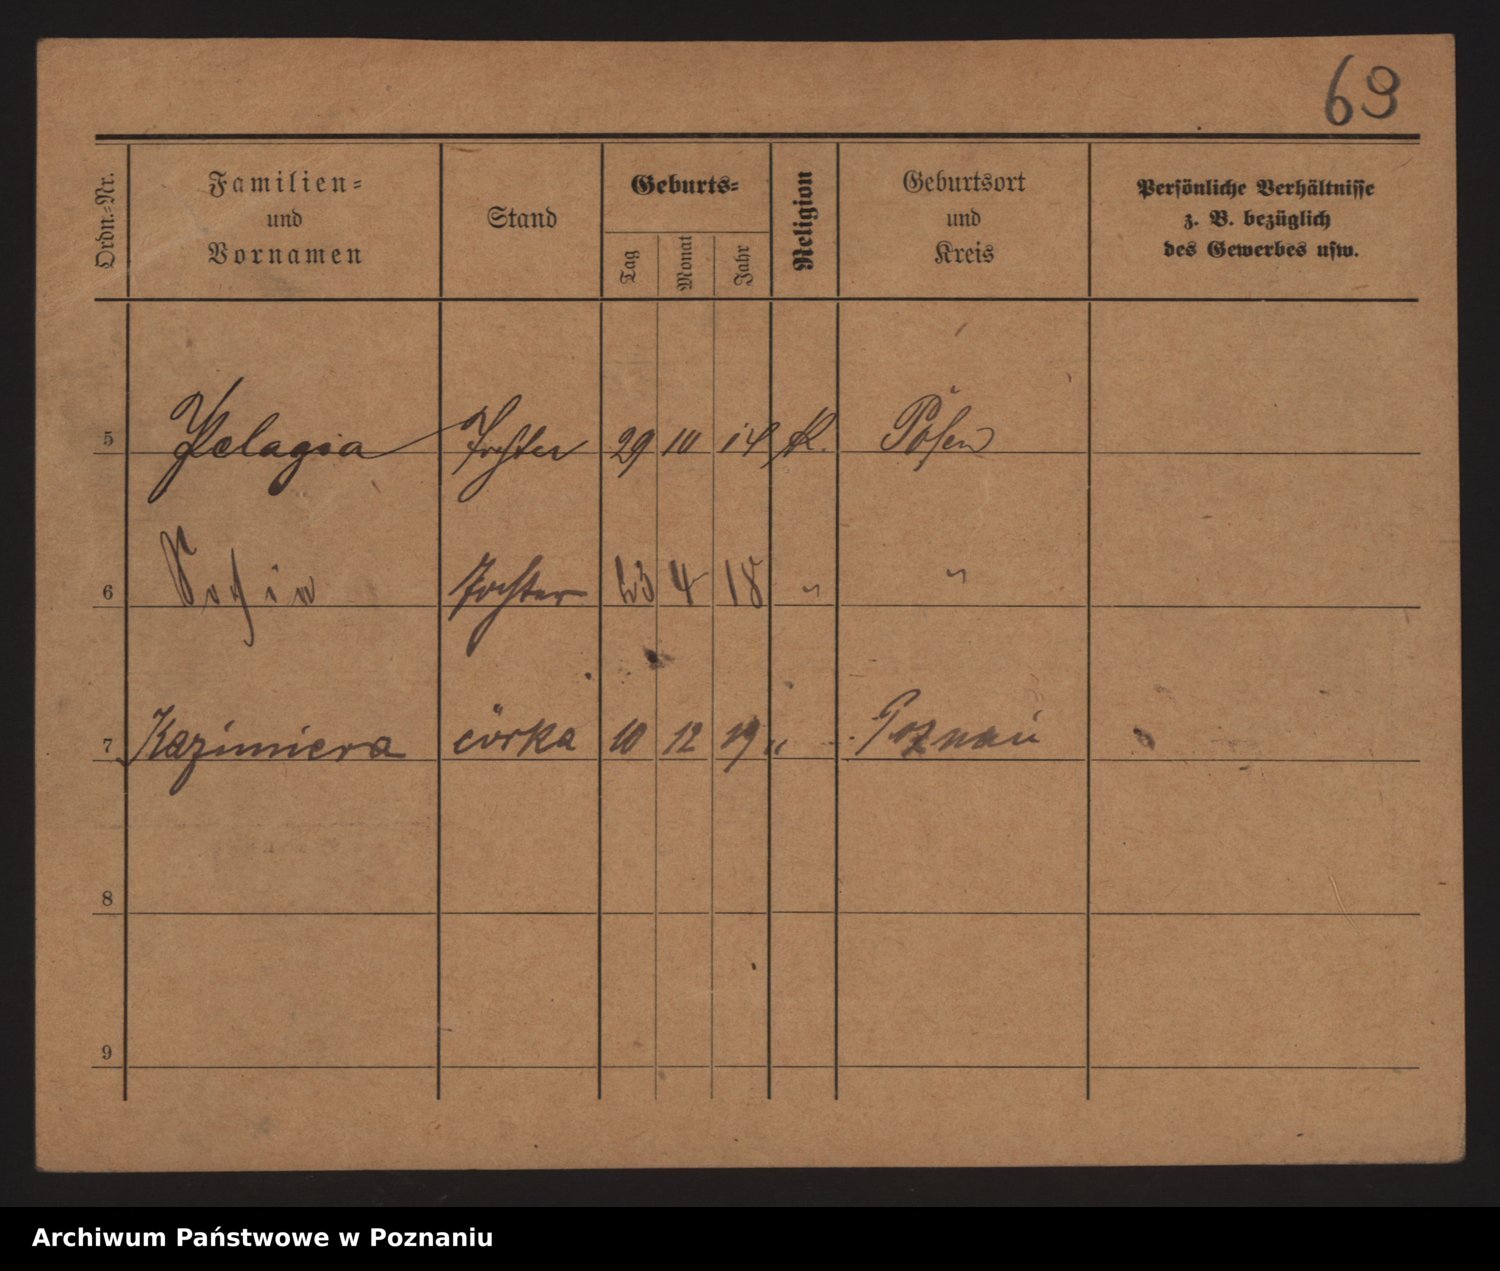 69
Ordn.-Nr.
Familien-
und
Vornamen
Stand
Geburts-
Tag
Monat
Jahr
Religion
Geburtsort
und
Kreis
Persönliche Verhältnisse
z. B. bezüglich
des Gewerbes usw.
5 Pelagia Tochter 29 10 14 k. Posen
6 Sofia Tochter 23 4 18 " "
7 Kazimiera córka 10 12 19 " Poznań
8
9
Archiwum Państwowe w Poznaniu